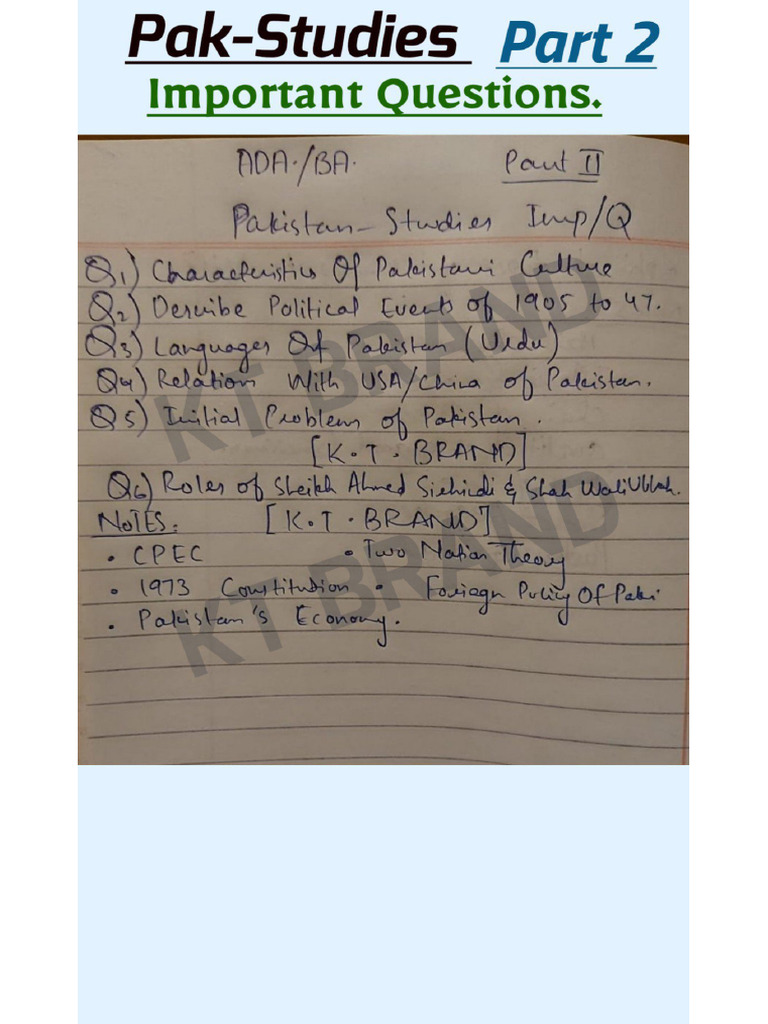 Pak-Studies Part 2
Important Questions.
ADA./BA. Part II
Pakistan-Studies Imp/Q
Q1) Characteristics Of Pakistani Culture
Q2) Describe Political Events of 1905 to 47.
Q3) Languages Of Pakistan (Urdu)
Q4) Relation With USA/China of Pakistan.
Q5) Initial Problem of Pakistan.
[K.T.BRAND]
Q6) Roles of Sheikh Ahmed Sirhindi & Shah Waliullah.
NOTES: [K.T.BRAND]
• CPEC • Two Nation Theory
• 1973 Constitution • Foriegn Policy Of Paki
• Pakistan's Economy.
KT BRAND
KT BRAND